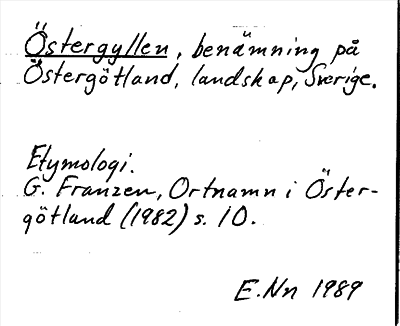 Östergyllen, benämning på
Östergötland, landskap, Sverige.
Etymologi.
G. Franzen, Ortnamn i Öster-
götland (1982) s. 10.
E.Nn 1989